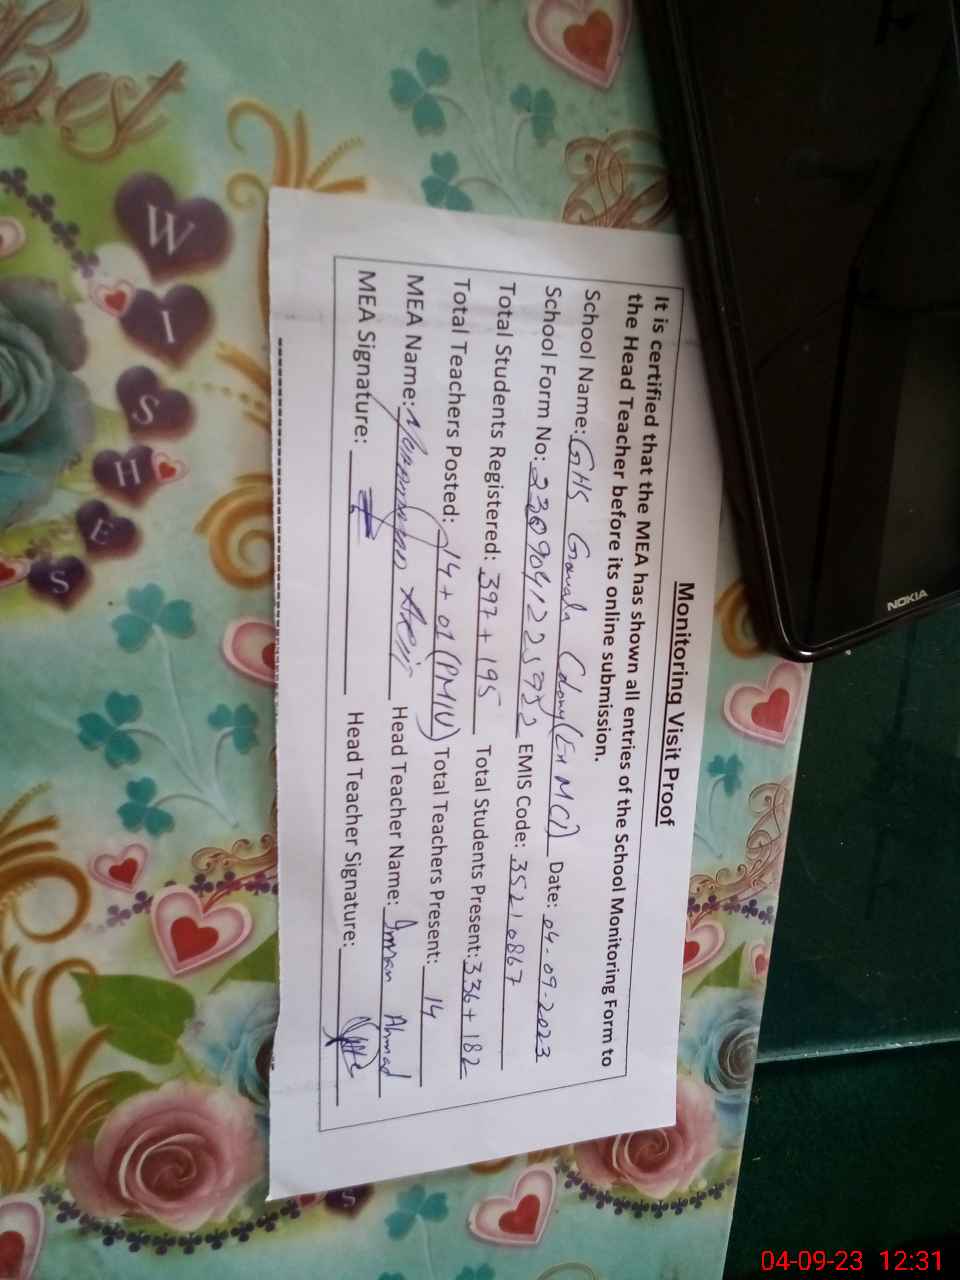 Monitoring Visit Proof
It is certified that the MEA has shown all entries of the School Monitoring Form to
the Head Teacher before its online submission.
School Name: GHS Gawala Colony (Ex MC) Date: 04-09-2023
School Form No: EMIS Code: 35210867
Total Students Registered: 397 + 195 Total Students Present: 336 + 182
Total Teachers Posted: 14 + 01 (PMIU) Total Teachers Present: 14
MEA Name: Head Teacher Name: Imran Ahmad
MEA Signature: Head Teacher Signature:
NOKIA
Best
WISHES
S
04-09-23 12:31